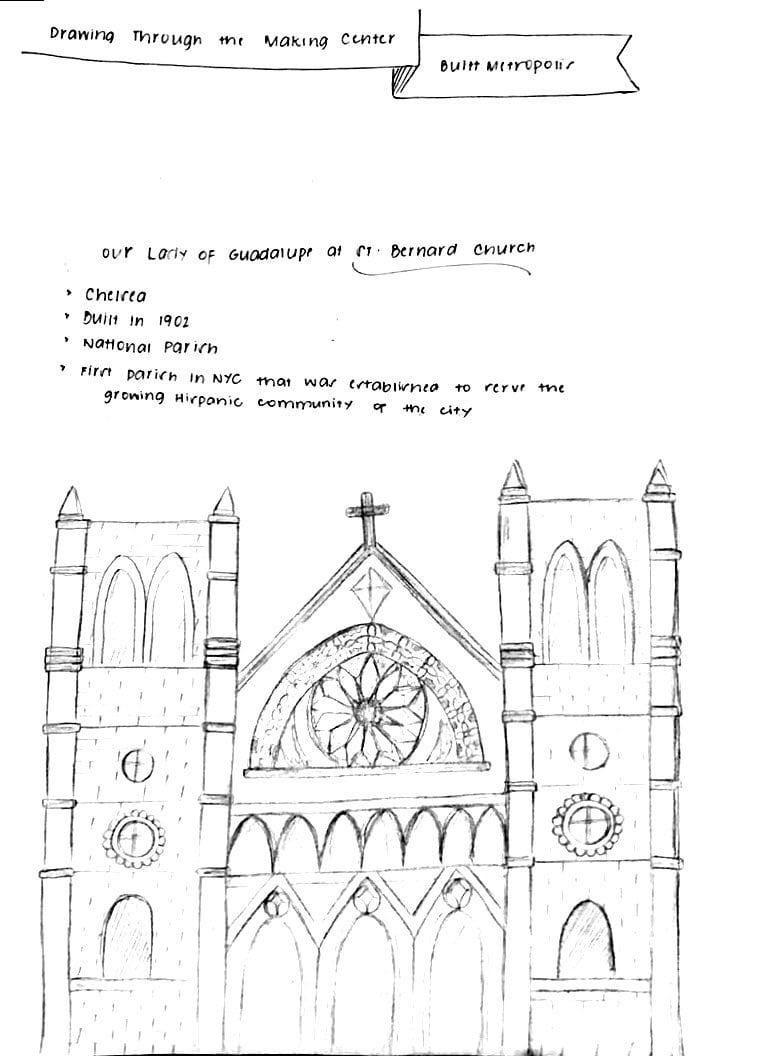 Drawing Through the Making Center
Built Metropolis
Our Lady of Guadalupe at St. Bernard Church
Chelsea
Built in 1902
National Parish
First parish in NYC that was established to serve the
growing Hispanic community of the city